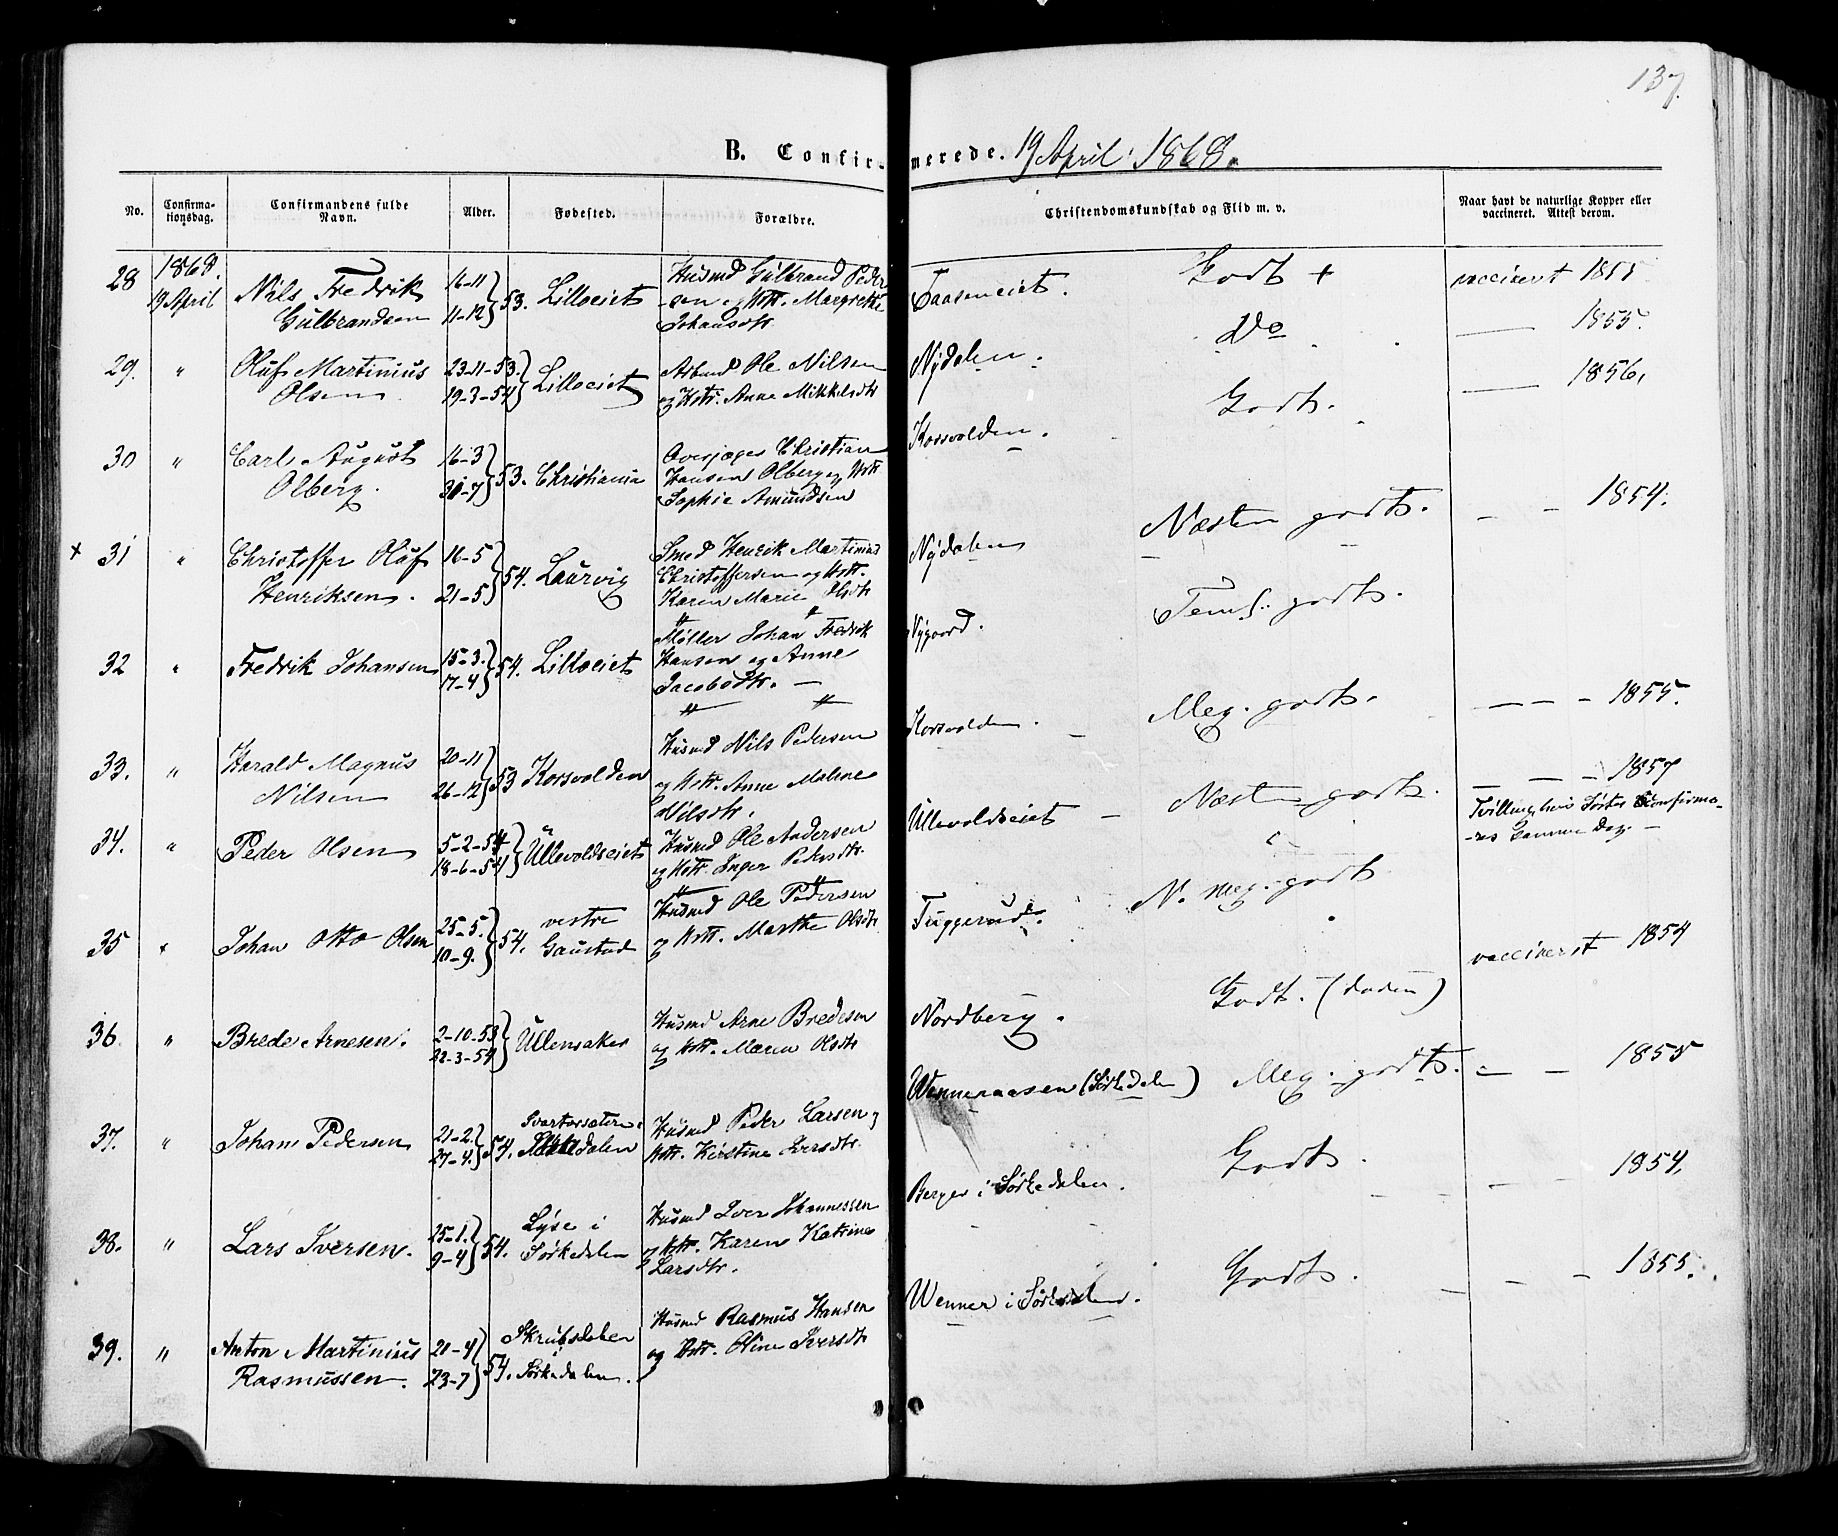 137.
B. Confirmerede. 19 April 1868.
No. Confirma-tionsdag. Confirmandens fulde Navn. Alder. Fødested. Forældre. Christendomskundskab og Flid m. v. Naar havt de naturlige Kopper eller vaccineret. Attest derom.
28 1868. 19 April Nils Fredrik Gulbrandsen 16-11 11-12 } 53. Lilloeiet Husmd Gulbrand Peder-sen og Hstr. Margrethe Johansdtr. Taaseneiet. Godt + vaccineret 1855
29. " Oluf Martinius Olsen 23-11-53. 19-3-54 } Lilloeiet Arbmd Ole Nilsen og Hstr. Anne Mikkelsdtr Nydalen. Do — 1855.
30 " Carl August Olberg. 16-3 31-7 } 53. Christiania Overjæger Christian Hansen Olberg og Hstr Sophie Amundsen Korsvolden. Godt. — 1856.
+ 31 " Christoffer Oluf Henriksen. 16-5 21-5 } 54. Laurvig Smed Henrik Martinius Christoffersen og Hstr. Karen Marie Olsdtr Nydalen Næsten godt. — — 1854.
32 " Fredrik Johansen 15-3. 17-4 } 54. Lilloeiet Møller Johan Fredrik Hansen og Anne Jacobsdtr. — Nygaard. Teml. godt.
33. " Harald Magnus Nilsen 20-11 26-12 } 53 Korsvolden Husmd Nils Pedersen og Hstr. Anne Malene Nilsdtr. Korsvolden. Meg. godt. — — — 1855.
34. " Peder Olsen 5-2-54 18-6-54 } Ullevoldseiet Husmd Ole Andersen og Hstr. Inger Pedersdtr. Ullevoldseiet — Næsten godt. — — — 1857
Tvilling, hvis Søster Confirme-res samme Dag. —
35 " Johan Otto Olsen 25-5. 10-9. } 54. vestre Gaustad Husmd Ole Pedersen og Hstr. Marthe Olsdtr Tuggerud. N. meg. godt vaccineret 1854
36. " Brede Arnesen. 2-10-53 22-3-54 } Ullensaker Husmd Arne Bredesen og Hstr. Maren Olsdtr Nordberg. Godt. — — 1855
37. " Johan Pedersen 21-2. 27-4. } 54. Svartorsæteren i Sørkedalen Husmd Peder Larsen og Hstr. Kirstine Iversdtr. Wenneraasen (Sørkedalen) Meg. godt. — — 1854.
38. " Lars Iversen. 25-1. 9-4 } 54. Lyse i Sørkedalen Husmd Iver Johannessen og Hstr. Karen Katrine Larsdtr. Berger i Sørkedalen. Godt. — — 1855.
39. " Anton Martinius Rasmussen. 20-4 23-7 } 54. i Sørkedalen. Husmd Rasmus Hansen og Hstr. Oline Iversdtr Wenner i Sørkedalen. Godt.